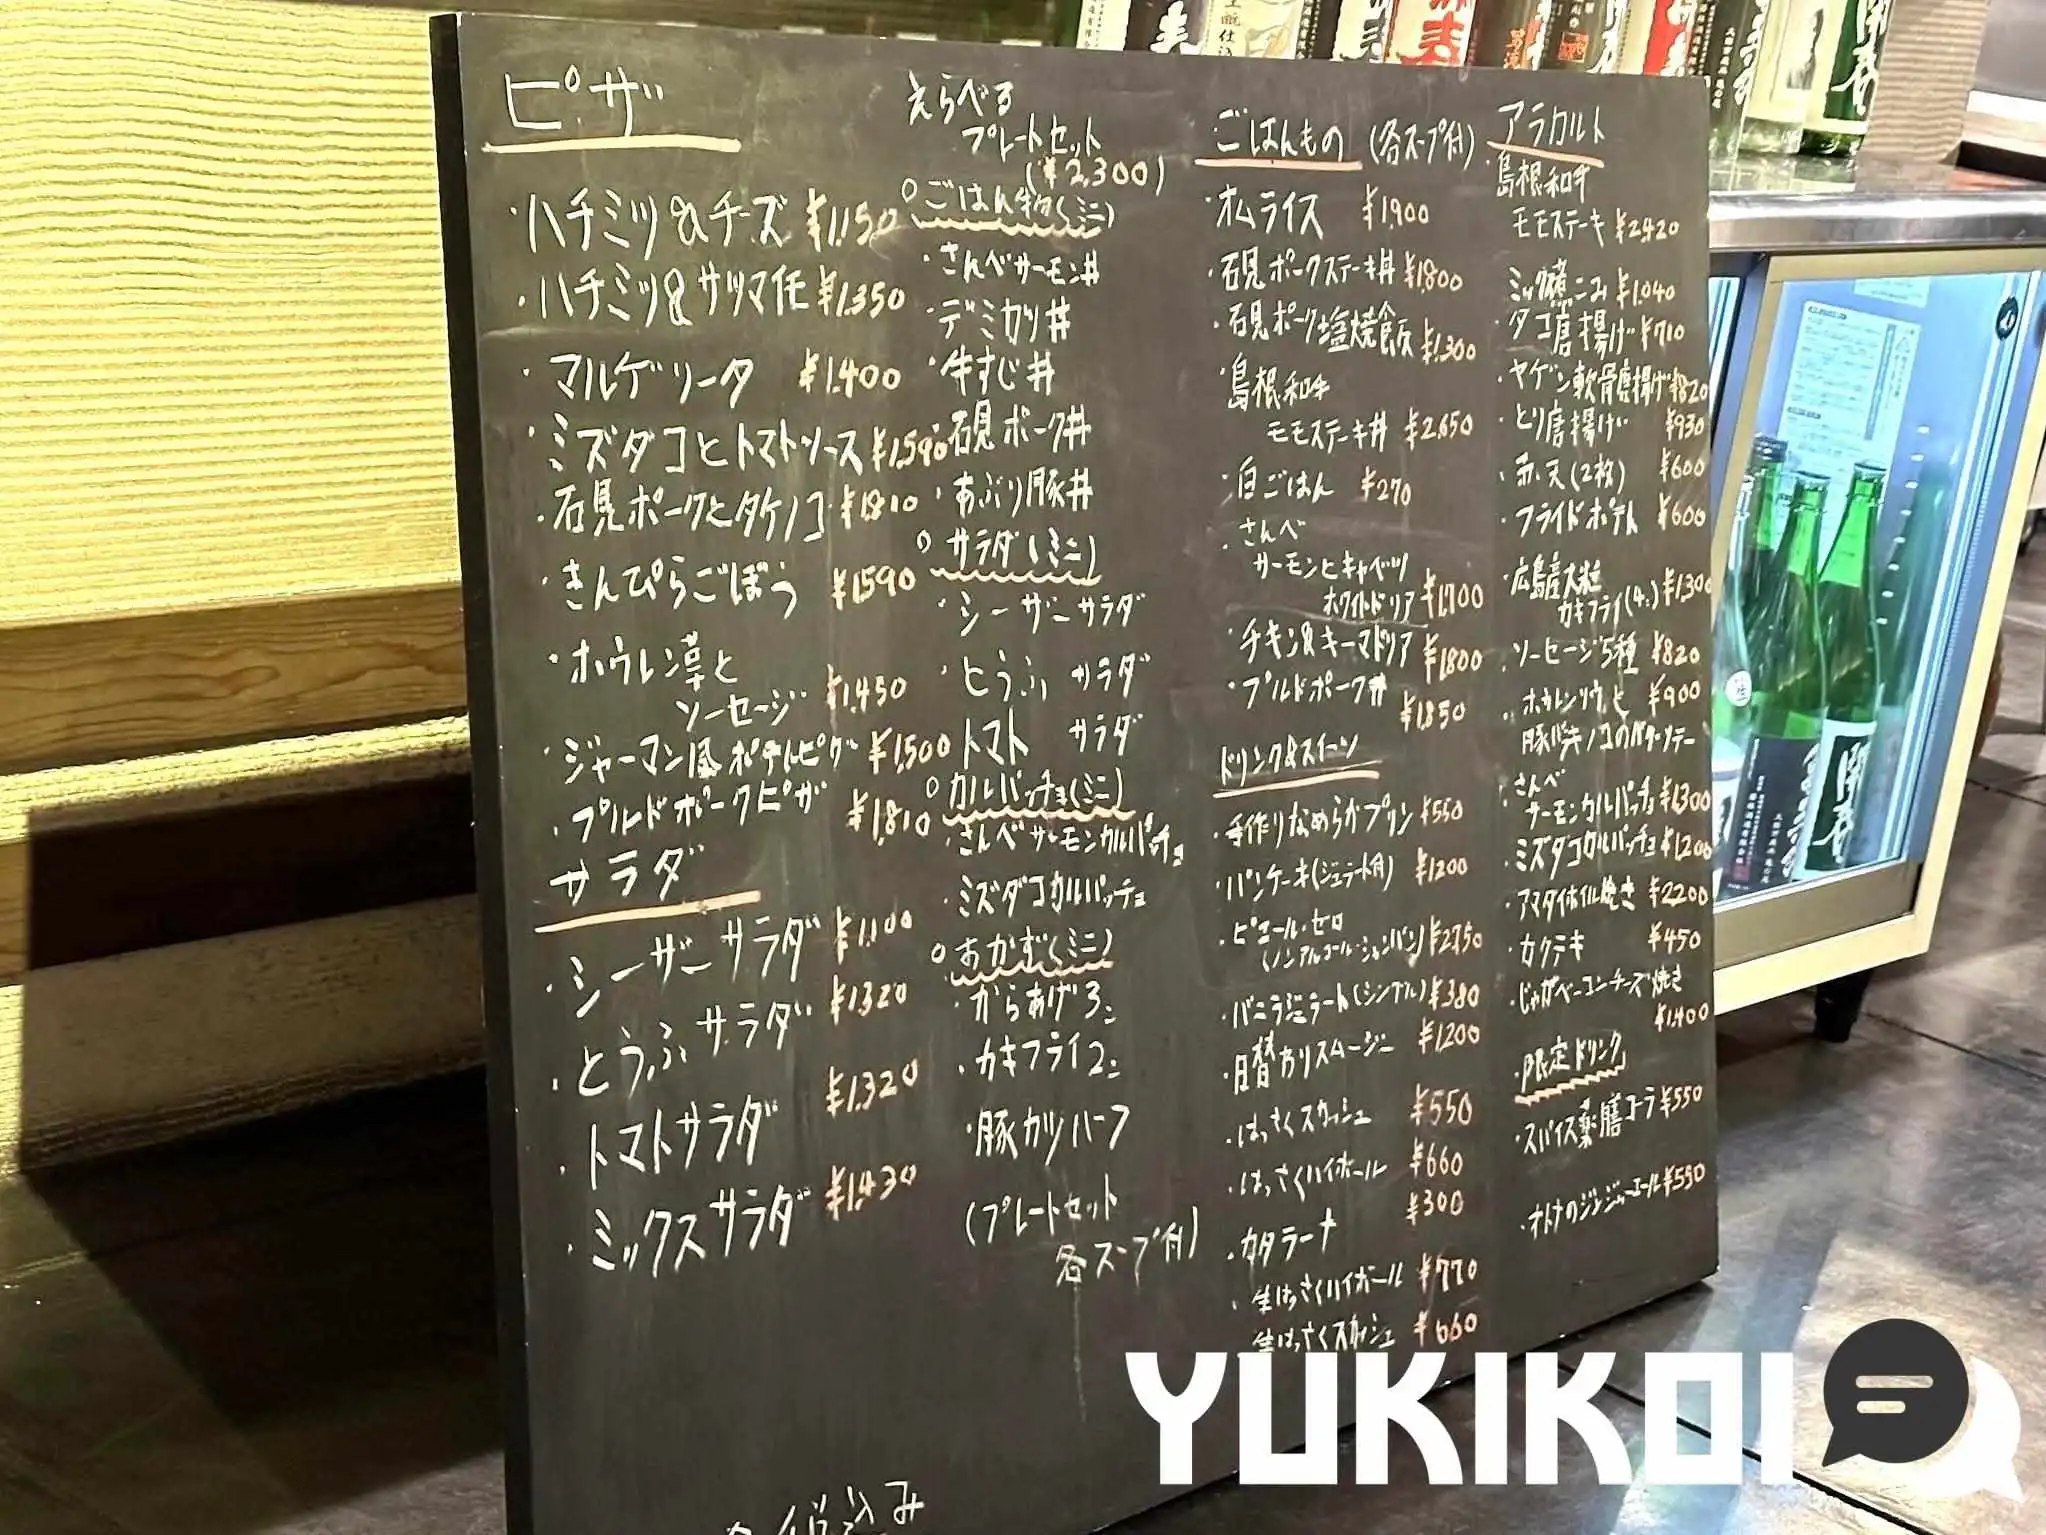 ピザ
・ハチミツ&チーズ ¥1,150
・ハチミツ&サツマイモ ¥1,350
・マルゲリータ ¥1,400
・ミズダコとトマトソース ¥1,590
・石見ポークとタケノコ ¥1,810
・きんぴらごぼう ¥1,590
・ホウレン草と
ソーセージ ¥1,450
・ジャーマン風ポテトピザ ¥1,500
・プルドポークピザ ¥1,810
サラダ
・シーザーサラダ ¥1,100
・とうふサラダ ¥1,320
・トマトサラダ ¥1,320
・ミックスサラダ ¥1,430
えらべる
プレートセット
(¥2,300)
○ごはん物(ミニ)
・さんべサーモン丼
・デミカツ丼
・牛すじ丼
・石見ポーク丼
・あぶり豚丼
○サラダ(ミニ)
・シーザーサラダ
・とうふサラダ
・トマトサラダ
○カルパッチョ(ミニ)
・さんべサーモンカルパッチョ
・ミズダコカルパッチョ
○おかず(ミニ)
・からあげ3コ
・カキフライ2コ
・豚カツハーフ
(プレートセット
各スープ付)
ごはんもの (各スープ付)
・オムライス ¥1,900
・石見ポークステーキ丼 ¥1,800
・石見ポーク塩焼飯 ¥1,300
・島根和牛
モモステーキ丼 ¥2,650
・白ごはん ¥270
・さんべ
サーモンとキャベツ
ホワイトドリア ¥1,700
・チキン&キーマドリア ¥1,800
・プルドポーク丼 ¥1,850
ドリンク&スイーツ
・手作りなめらかプリン ¥550
・パンケーキ(ジェラート付) ¥1200
・ピエール・ゼロ
(ノンアルコールシャンパン) ¥2,750
・バニラジェラート(シングル) ¥380
・日替カリスムージー ¥1,200
・はっさくスカッシュ ¥550
・はっさくハイボール ¥660
・カタラーナ ¥300
・生はっさくハイボール ¥770
・生はっさくスカッシュ ¥660
アラカルト
・島根和牛
モモステーキ ¥2,420
・ミックス煮こみ ¥1,040
・タコ唐揚げ ¥710
・ヤゲン軟骨唐揚げ ¥820
・とり唐揚げ ¥930
・赤天(2枚) ¥600
・フライドポテト ¥600
・広島産大粒
カキフライ(4コ) ¥1,300
・ソーセージ5種 ¥820
・ホウレンソウと ¥900
豚バラキノコのバターソテー
・さんべ
サーモンカルパッチョ ¥1,300
・ミズダコカルパッチョ ¥1,200
・アマダイホイル焼き ¥2200
・カクテキ ¥450
・じゃがベーコンチーズ焼き
¥1,400
限定ドリンク
・スパイス薬膳コーラ ¥550
・オトナのジンジャーエール ¥550
税込み
開春
YUKIKOI